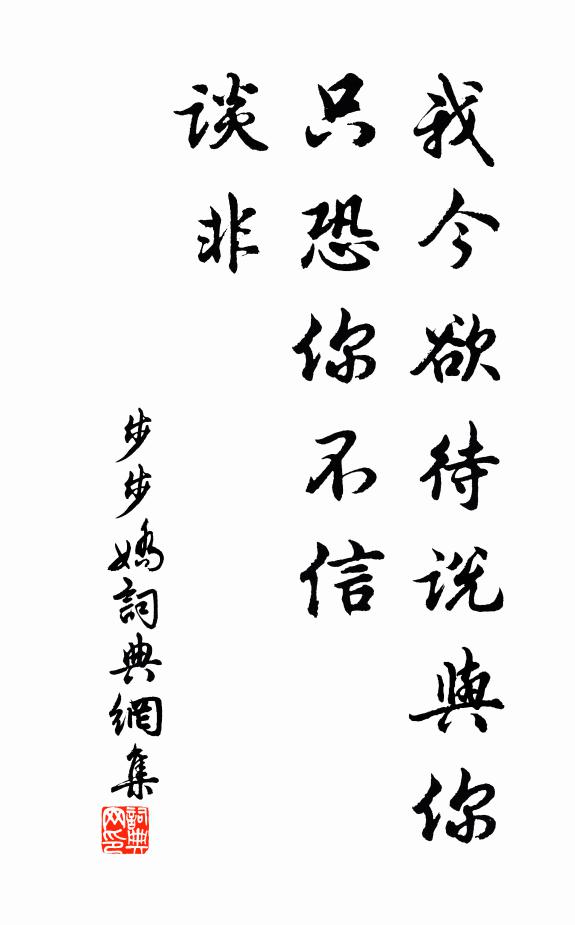 我今欲待说與你
只恐你不信
谈非
步步嬌詞典網集
詞典
网印